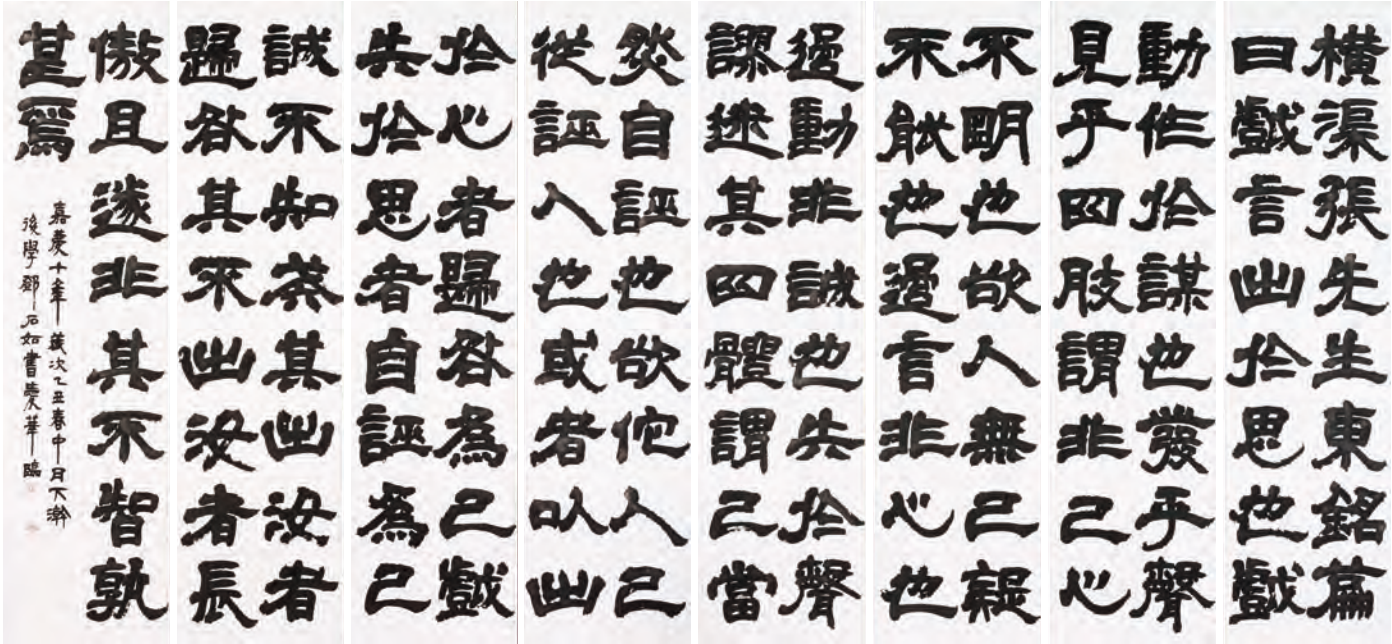 橫渠張先生東銘篇
曰戲言出於思也戲
動作於謀也發乎聲
見乎四肢謂非己心
不明也欲人無己疑
不能也過言非心也
過動非誠也失於聲
謬迷其四體謂己當
然自誣也欲佗人己
從誣人也或者以出
於心者歸咎為己戲
失於思者自誣為己
誠不知戒其出汝者
歸咎其不出汝者長
傲且遂非其不智孰
甚焉
嘉慶十年歲次乙丑春中月下澣
後學鄧石如書華臨